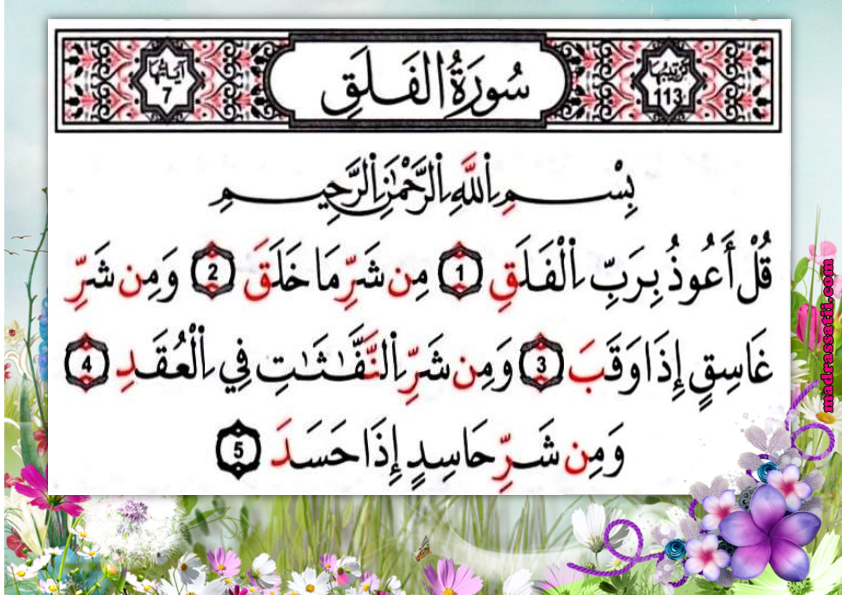 ترتيبها
113
سُورَةُ الفَلَقِ
آيَاتُهَا
7
بِسْمِ اِ۬للَّهِ اِ۬لرَّحْمَٰنِ اِ۬لرَّحِيمِ
قُلْ أَعُوذُ بِرَبِّ اِ۬لْفَلَقِ 1 مِن شَرِّ مَا خَلَقَ 2 وَمِن شَرِّ
غَاسِقٍ إِذَا وَقَبَ 3 وَمِن شَرِّ اِ۬لنَّفَّٰثَٰتِ فِي اِ۬لْعُقَدِ 4
وَمِن شَرِّ حَاسِدٍ إِذَا حَسَدَ 5
madrassatii.com